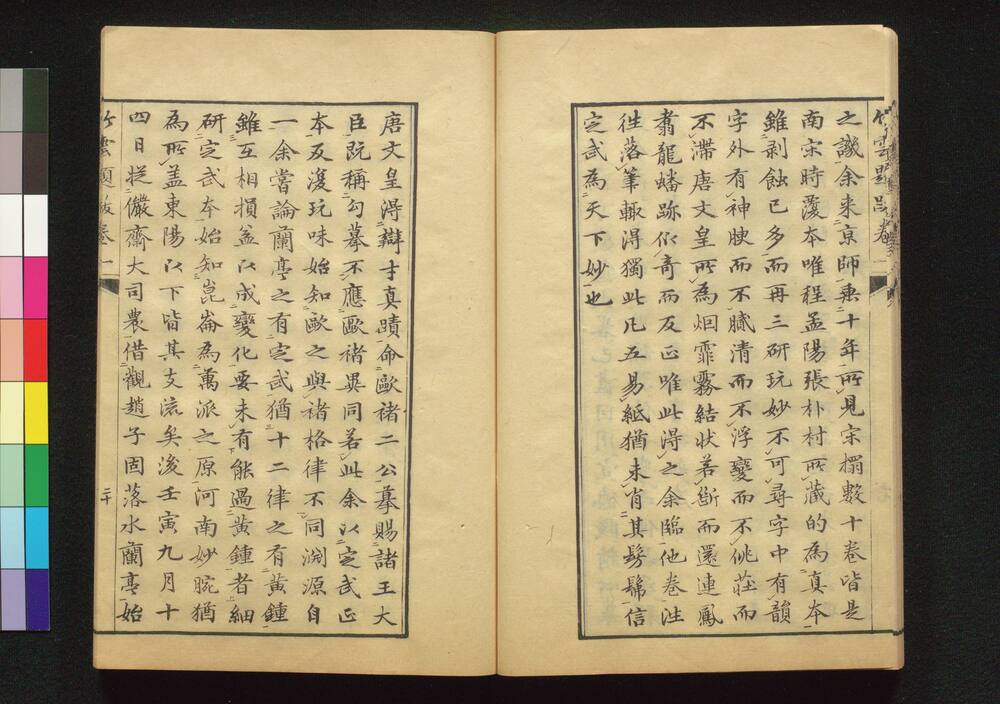 竹雲題跋卷一
之識余来京師乘二十年所見宋搨數十卷皆是
南宋時覆本唯程孟陽張朴村所蔵的為真本
雖剥蝕已多而再三研玩妙不可尋字中有韻
字外有神腴而不膩清而不浮變而不佻莊而
不滯唐文皇所為烟霏霧結状若斷而還連鳳
翥龍蟠跡似奇而反正唯此得之余臨他卷往
往落筆輙得獨此凡五易紙猶未肖其髣髴信
定武為天下妙也
唐文皇得辯才真蹟命歐褚二公摹賜諸王大
臣既稱勾摹不應歐褚異同若此余以定武正
本反復玩味始知歐之與褚格律不同淵源自
一余嘗論蘭亭之有定武猶十二律之有黄鍾
雖互相損益以成變化要未有能過黄鍾者細
研定武本始知崑崙為萬派之原河南妙腕猶
為所盖東陽以下皆其支流矣後壬寅九月十
四日従儼齋大司農借觀趙子固落水蘭亭始
竹雲題跋卷一
二十